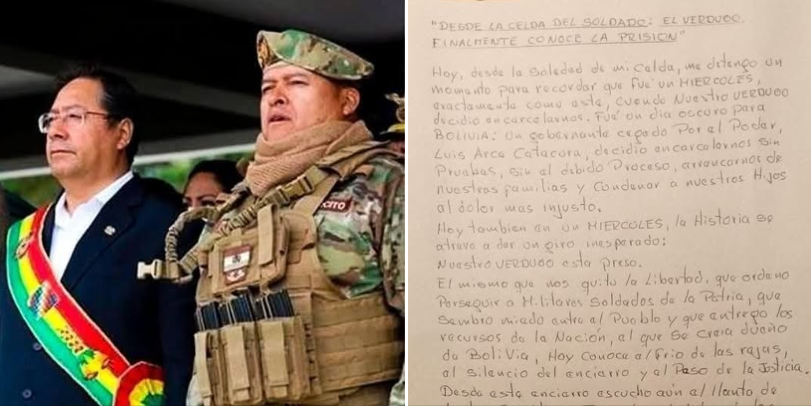 CITO
"DESDE LA CELDA DEL SOLDADO: EL VERDUGO
FINALMENTE CONOCE LA PRISION"
Hoy, desde la Soledad de mi Celda, me detengo un
momento para recordar que fue un MIERCOLES,
exactamente como este, cuando Nuestro VERDUGO
decidio encarcelarnos. Fue un dia oscuro para
BOLIVIA: Un gobernante cegado Por el Poder,
Luis Arce Catacora, decidio encarcelarnos Sin
Pruebas, Sin el debido Proceso, arrancarnos de
nuestras familias y Condenar a nuestros Hijos
al dolor mas injusto.
Hoy tambien en un MIERCOLES, la Historia se
atrave a dar un giro inesperado:
Nuestro VERDUGO esta preso.
El mismo que nos quito la Libertad, que ordeno
Perseguir a Militares Soldados de la Patria, que
Sembro miedo entre el Pueblo y que entrego los
recursos de la Nación, el que se Creia dueño
de Bolivia, Hoy Conoce el frio de las rejas,
al Silencio del encierro y el Peso de la Justicia.
Desde este encierro escucho aún el llanto de